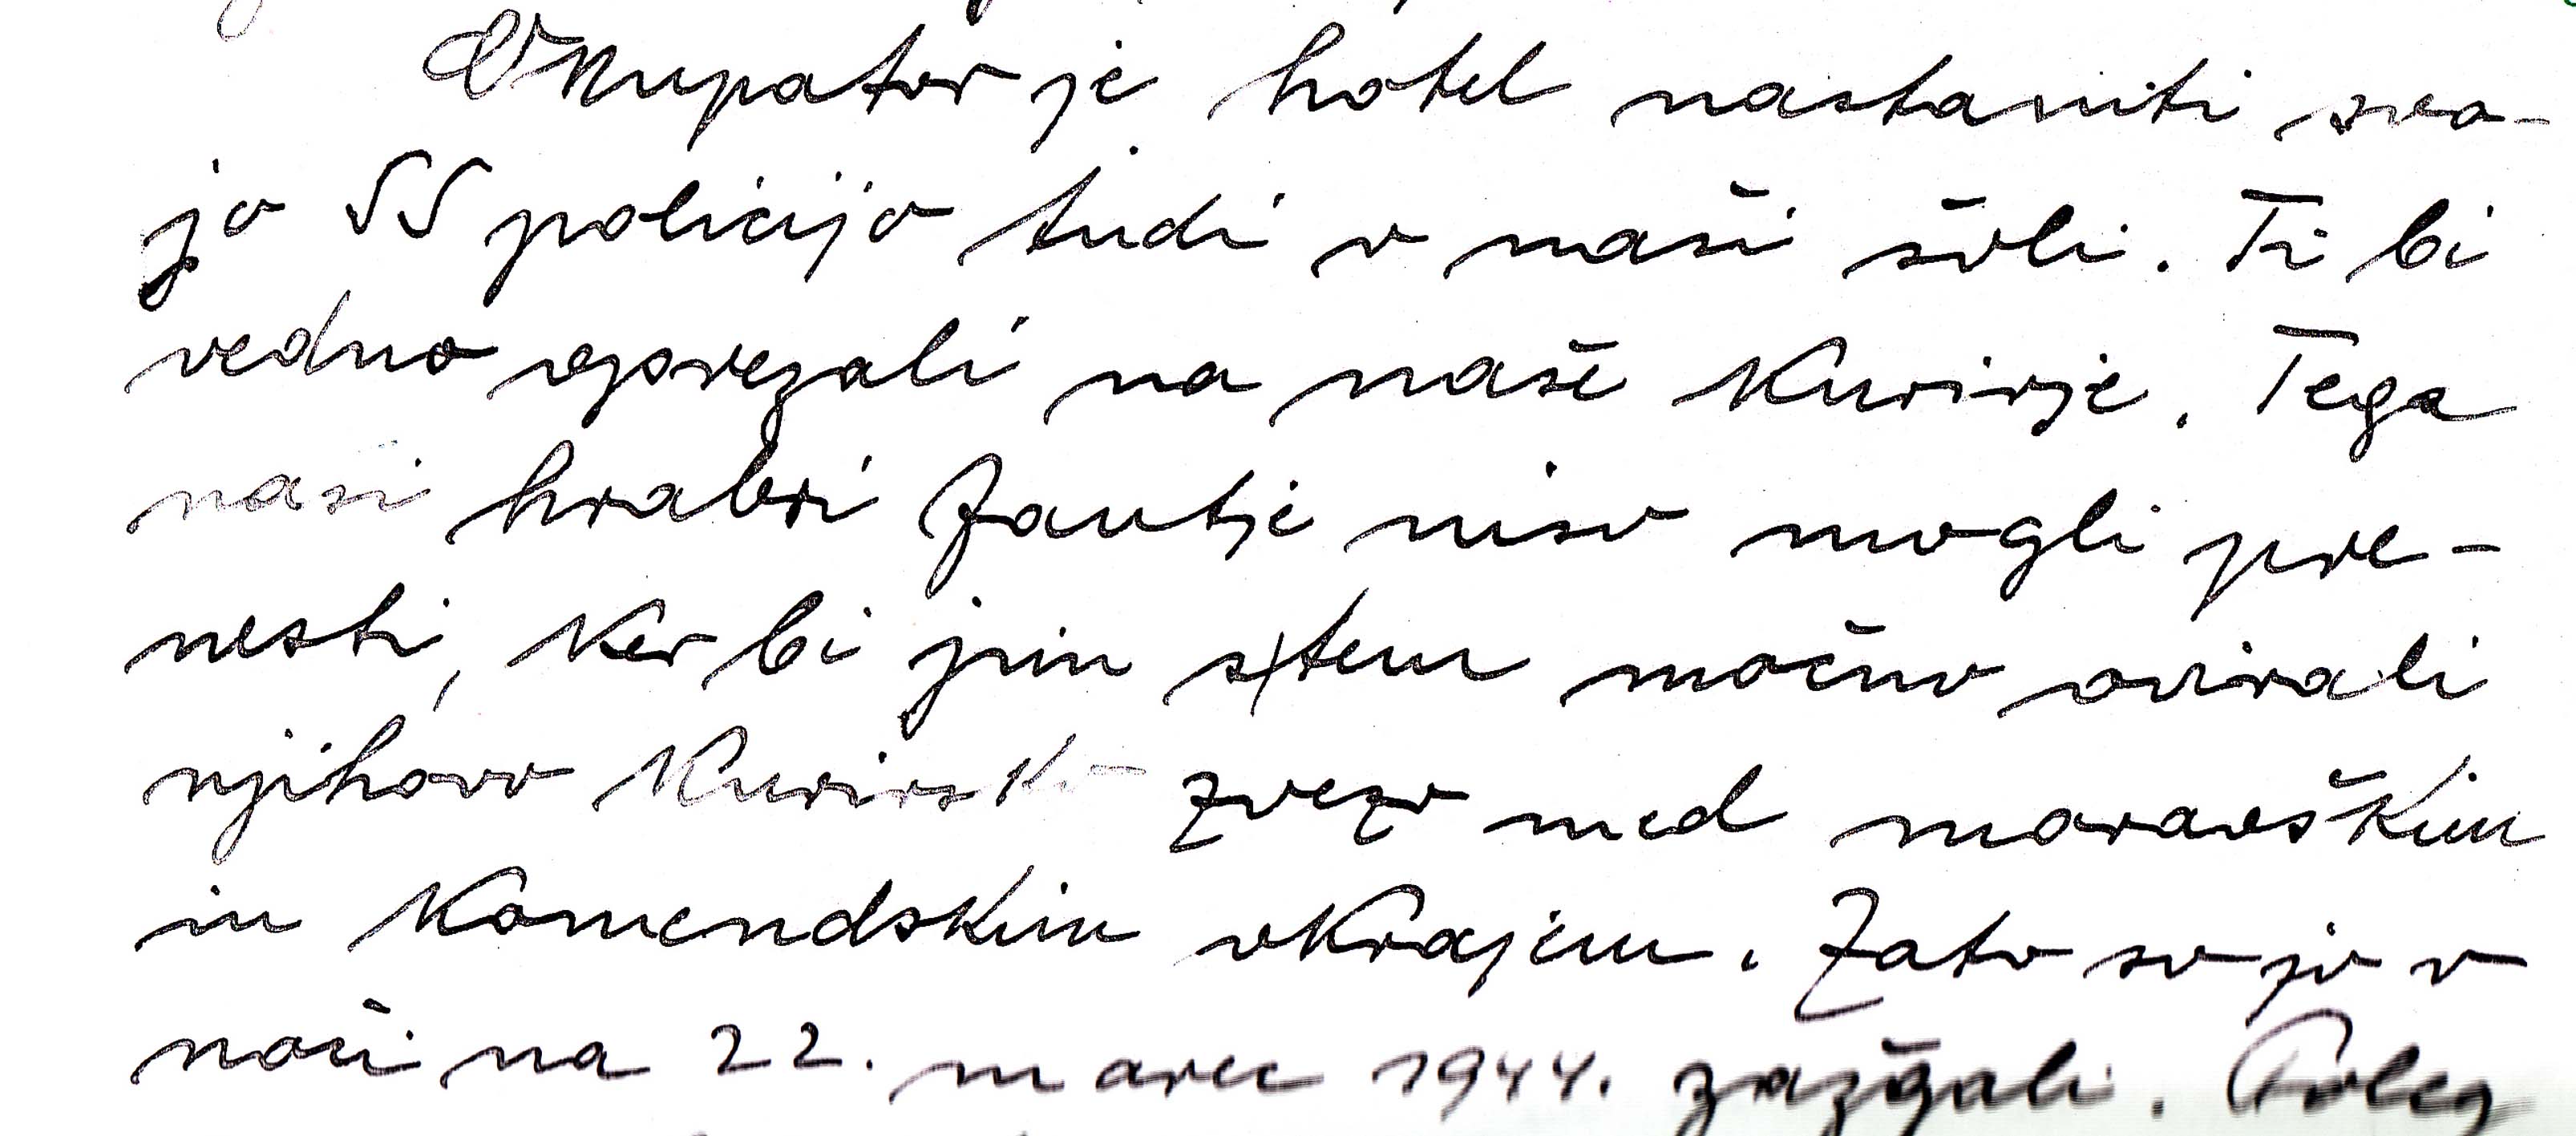 Okupator je hotel nastaniti svo-
jo SS policijo tudi v naši šoli. Ti bi
vedno oprezali na naše kurirje. Tega
naši hrabri fantje niso mogli pre-
nesti, ker bi jim s tem močno ovirali
njihovo kurirsko zvezo med moravškim
in komendskim okrajem. Zato so jo v
noči na 22. marec 1944. zažgali. Poleg